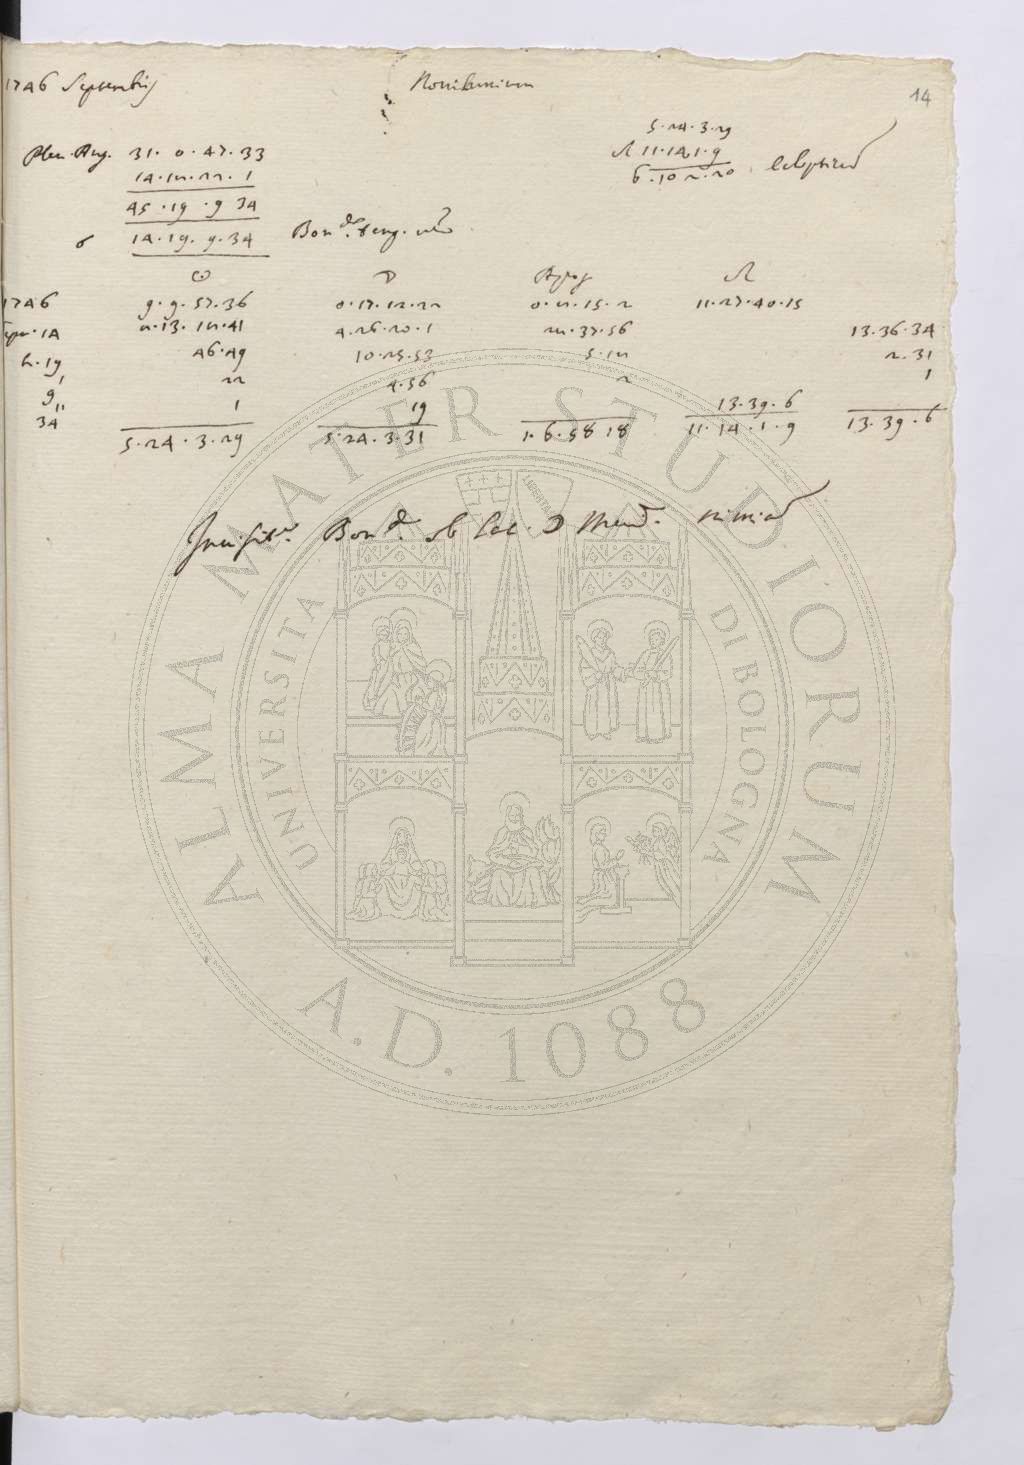 1746 Septembris Novilunium 14
Plen. Aug. 31. 0. 47. 33
14. 18. 22. 1
45. 19. 9 34
☌ 14. 19. 9. 34 Bon.
5. 24. 3. 29
☊ 11. 14. 1. 9
6. 10 2. 20. Eclyptica
☉ ☽ Apog ☊
1746 9. 9. 57. 36 0. 17. 12. 22 0. 8. 15. 2 11. 27. 40. 15
14 8. 13. 18. 41 4. 26. 20. 1 28. 37. 56 13. 36. 34
h. 19 46. 49 10. 25. 53 5. 18 2. 31
9' 22 4. 56 2 1
34'' 1 19 13. 39. 6
5. 24. 3. 29 5. 24. 3. 31 1. 6. 58 18 11. 14. 1. 9 13. 39. 6
Bon. ob Lat. ☽
ALMA MATER STUDIORUM
UNIVERSITA DI BOLOGNA
LIBERTAS
A.D. 1088